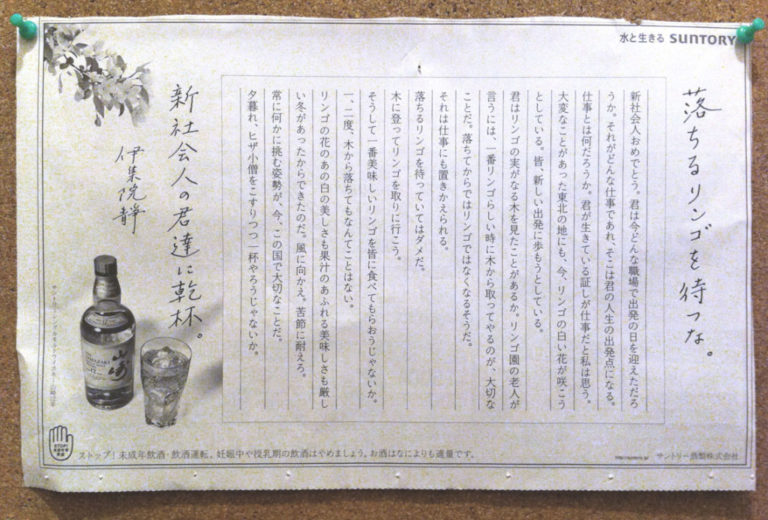 水と生きる SUNTORY
落ちるリンゴを待つな。
新社会人おめでとう。君は今どんな職場で出発の日を迎えただろ
うか。それがどんな仕事であれ、そこは君の人生の出発点になる。
仕事とは何だろうか。君が生きている証しが仕事だと私は思う。
大変なことがあった東北の地にも、今、リンゴの白い花が咲こう
としている。皆、新しい出発に歩もうとしている。
君はリンゴの実がなる木を見たことがあるか。リンゴ園の老人が
言うには、一番リンゴらしい時に木から取ってやるのが、大切な
ことだ。落ちてからではリンゴではなくなるそうだ。
それは仕事にも置きかえられる。
落ちるリンゴを待っていてはダメだ。
木に登ってリンゴを取りに行こう。
そうして一番美味しいリンゴを皆に食べてもらおうじゃないか。
一、二度、木から落ちてもなんてことはない。
リンゴの花のあの白の美しさも果汁のあふれる美味しさも厳し
い冬があったからできたのだ。風に向かえ。苦節に耐えろ。
常に何かに挑む姿勢が、今、この国で大切なことだ。
夕暮れ、ヒザ小僧をこすりつつ一杯やろうじゃないか。
新社会人の君達に乾杯。
伊集院静
山崎
STOP!
ストップ!未成年飲酒・飲酒運転。妊娠中や授乳期の飲酒はやめましょう。お酒はなによりも適量です。
サントリー酒類株式会社